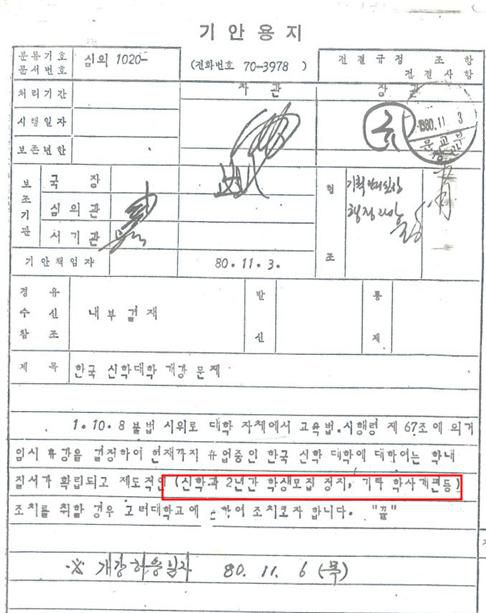 기안용지
분류기호
문서번호
심의 1020-
(전화번호 70-3978)
전결규정 조 항
전결사항
처리기간
차관
장관
시행일자
보존년한
1980.11. 3
문교부
장관
보조기관
국장
심의관
서기관
협조
기획관리실장
행정과장
기안책임자
80.11.3.
경유
수신
참조
내부결재
발신
통제
제목
한국 신학대학 개강 문제
1.10.8 불법 시위로 대학 자체에서 교육법.시행령 제 67조에 의거
임시 휴강을 결정하여 현재까지 휴업중인 한국 신학 대학에 대하여는 학내
질서가 확립되고 제도적인 (신학과 2년간 학생모집 정지, 기타 학사개편등)
조치를 취할 경우 그 대학교에 하여 조치코자 합니다. "끝"
※ 개강허용일자 80. 11. 6 (목)